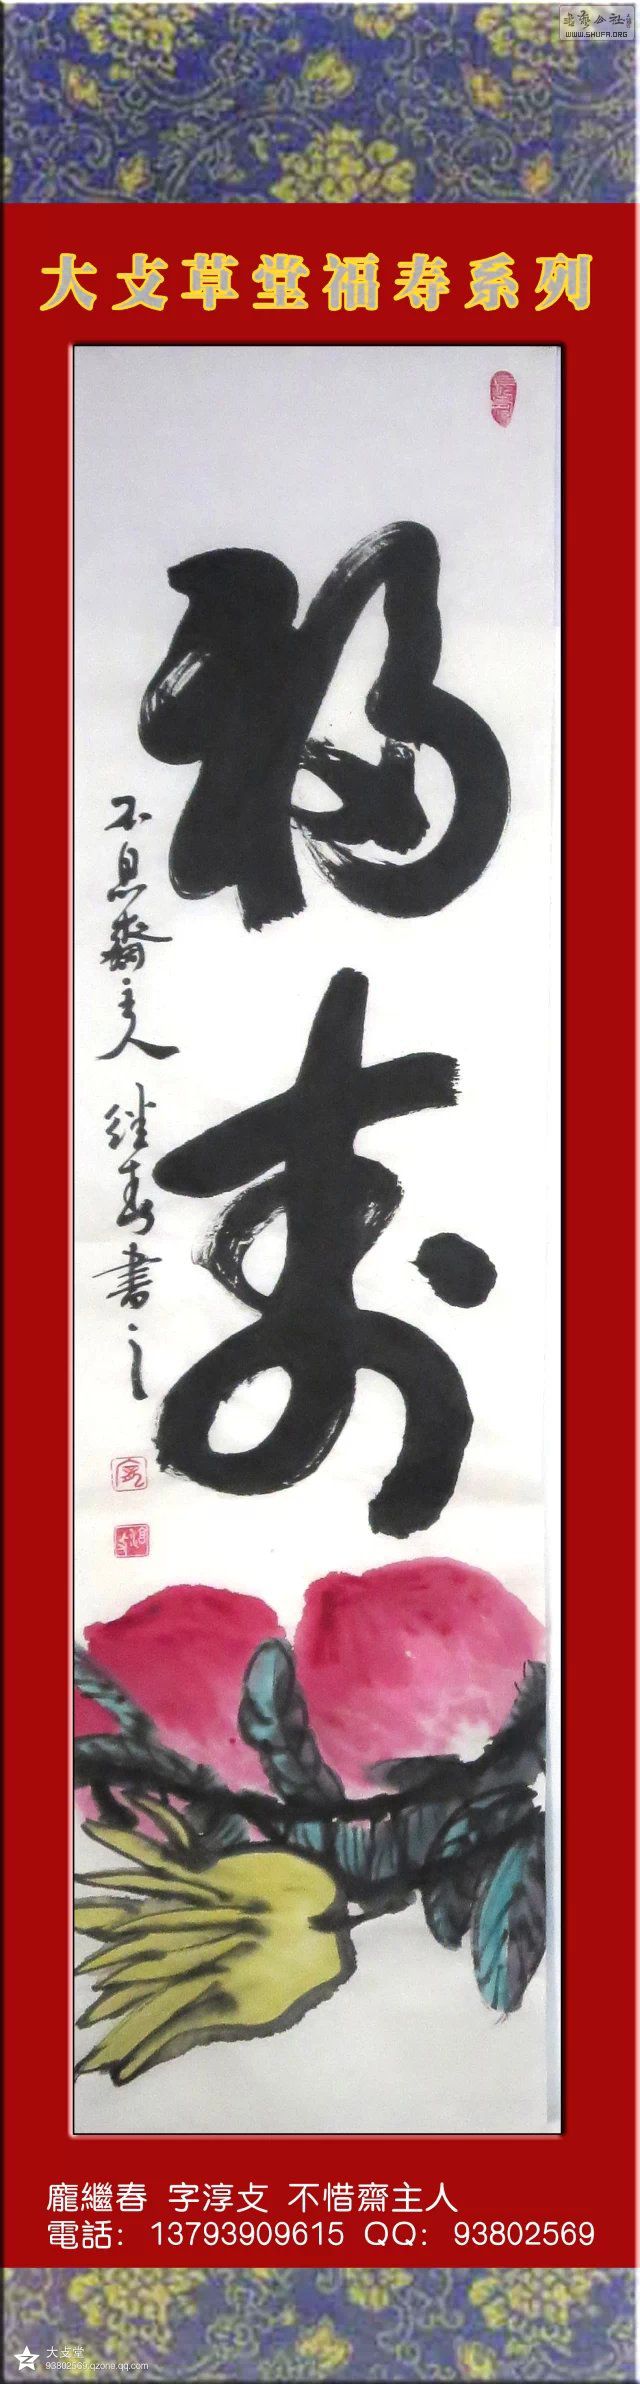 书法公社
WWW.SHUFA.ORG
大攴草堂福寿系列
福寿
不息齋主人 继春書之
龐繼春 字淳攴 不惜齋主人
電話：13793909615 QQ：93802569
大攴堂
93802569.qzone.qq.com